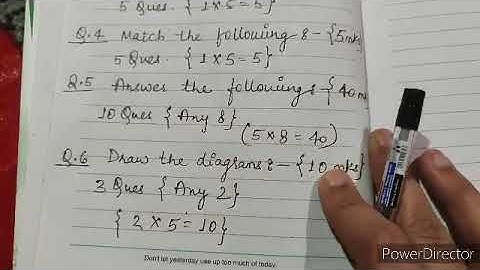 5 Ques. { 1 x 5 = 5 }
Q.4 Match the following :- {5 mks}
5 Ques. { 1 x 5 = 5 }
Q.5 Answer the following : { 40 m
10 Ques { Any 8 }
( 5 x 8 = 40 )
Q.6 Draw the diagrams :- { 10 mks }
3 Ques { Any 2 }
{ 2 x 5 = 10 }
Don't let yesterday use up too much of today.
PowerDirector